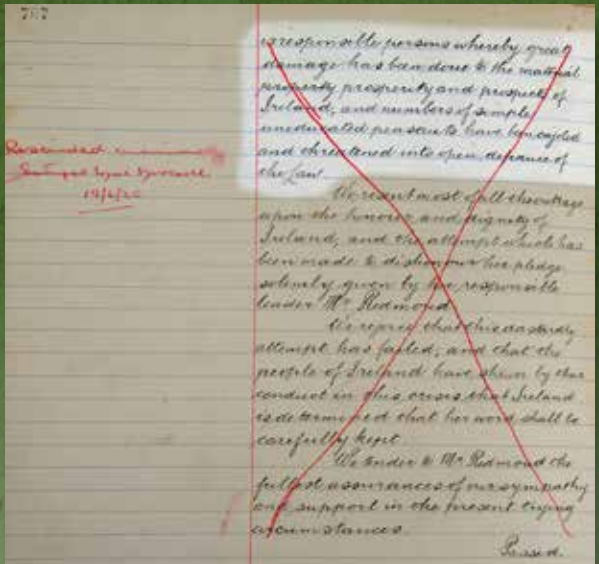 irresponsible persons whereby great
damage has been done to the material
property prosperity and prospects of
Ireland, and numbers of simple
uneducated peasants to have been cajoled
and threatened into open defiance of
the Law.
We resent most of all the outrage
upon the honour and dignity of
Ireland, and the attempt which has
been made to dishonour her pledge
solemnly given by her responsible
leader Mr Redmond
We rejoice that this dastardly
attempt has failed, and that the
people of Ireland have shewn by their
conduct in this crisis that Ireland
is determined that her word shall be
carefully kept
We tender to Mr Redmond the
fullest assurances of our sympathy
and support in the present trying
circumstances.
Passed.
Rescinded